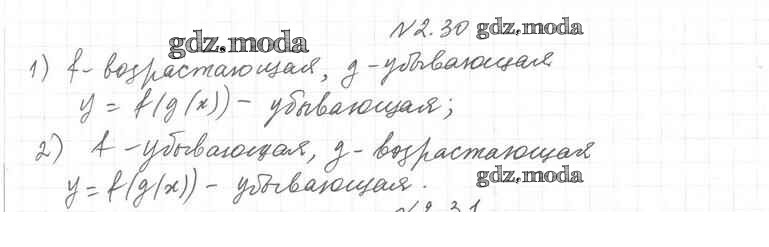 N2.30 gdz.moda
gdz.moda
1) f - возрастающая, g - убывающая
y = f(g(x)) - убывающая;
2) f - убывающая, g - возрастающая
y = f(g(x)) - убывающая.
gdz.moda
N2.31